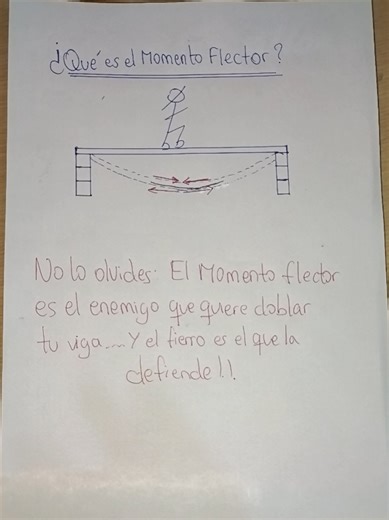 ¿Qué es el Momento Flector?
No lo olvides: El Momento flector
es el enemigo que quere doblar
tu viga....Y el fierro es el que la
defiende!!